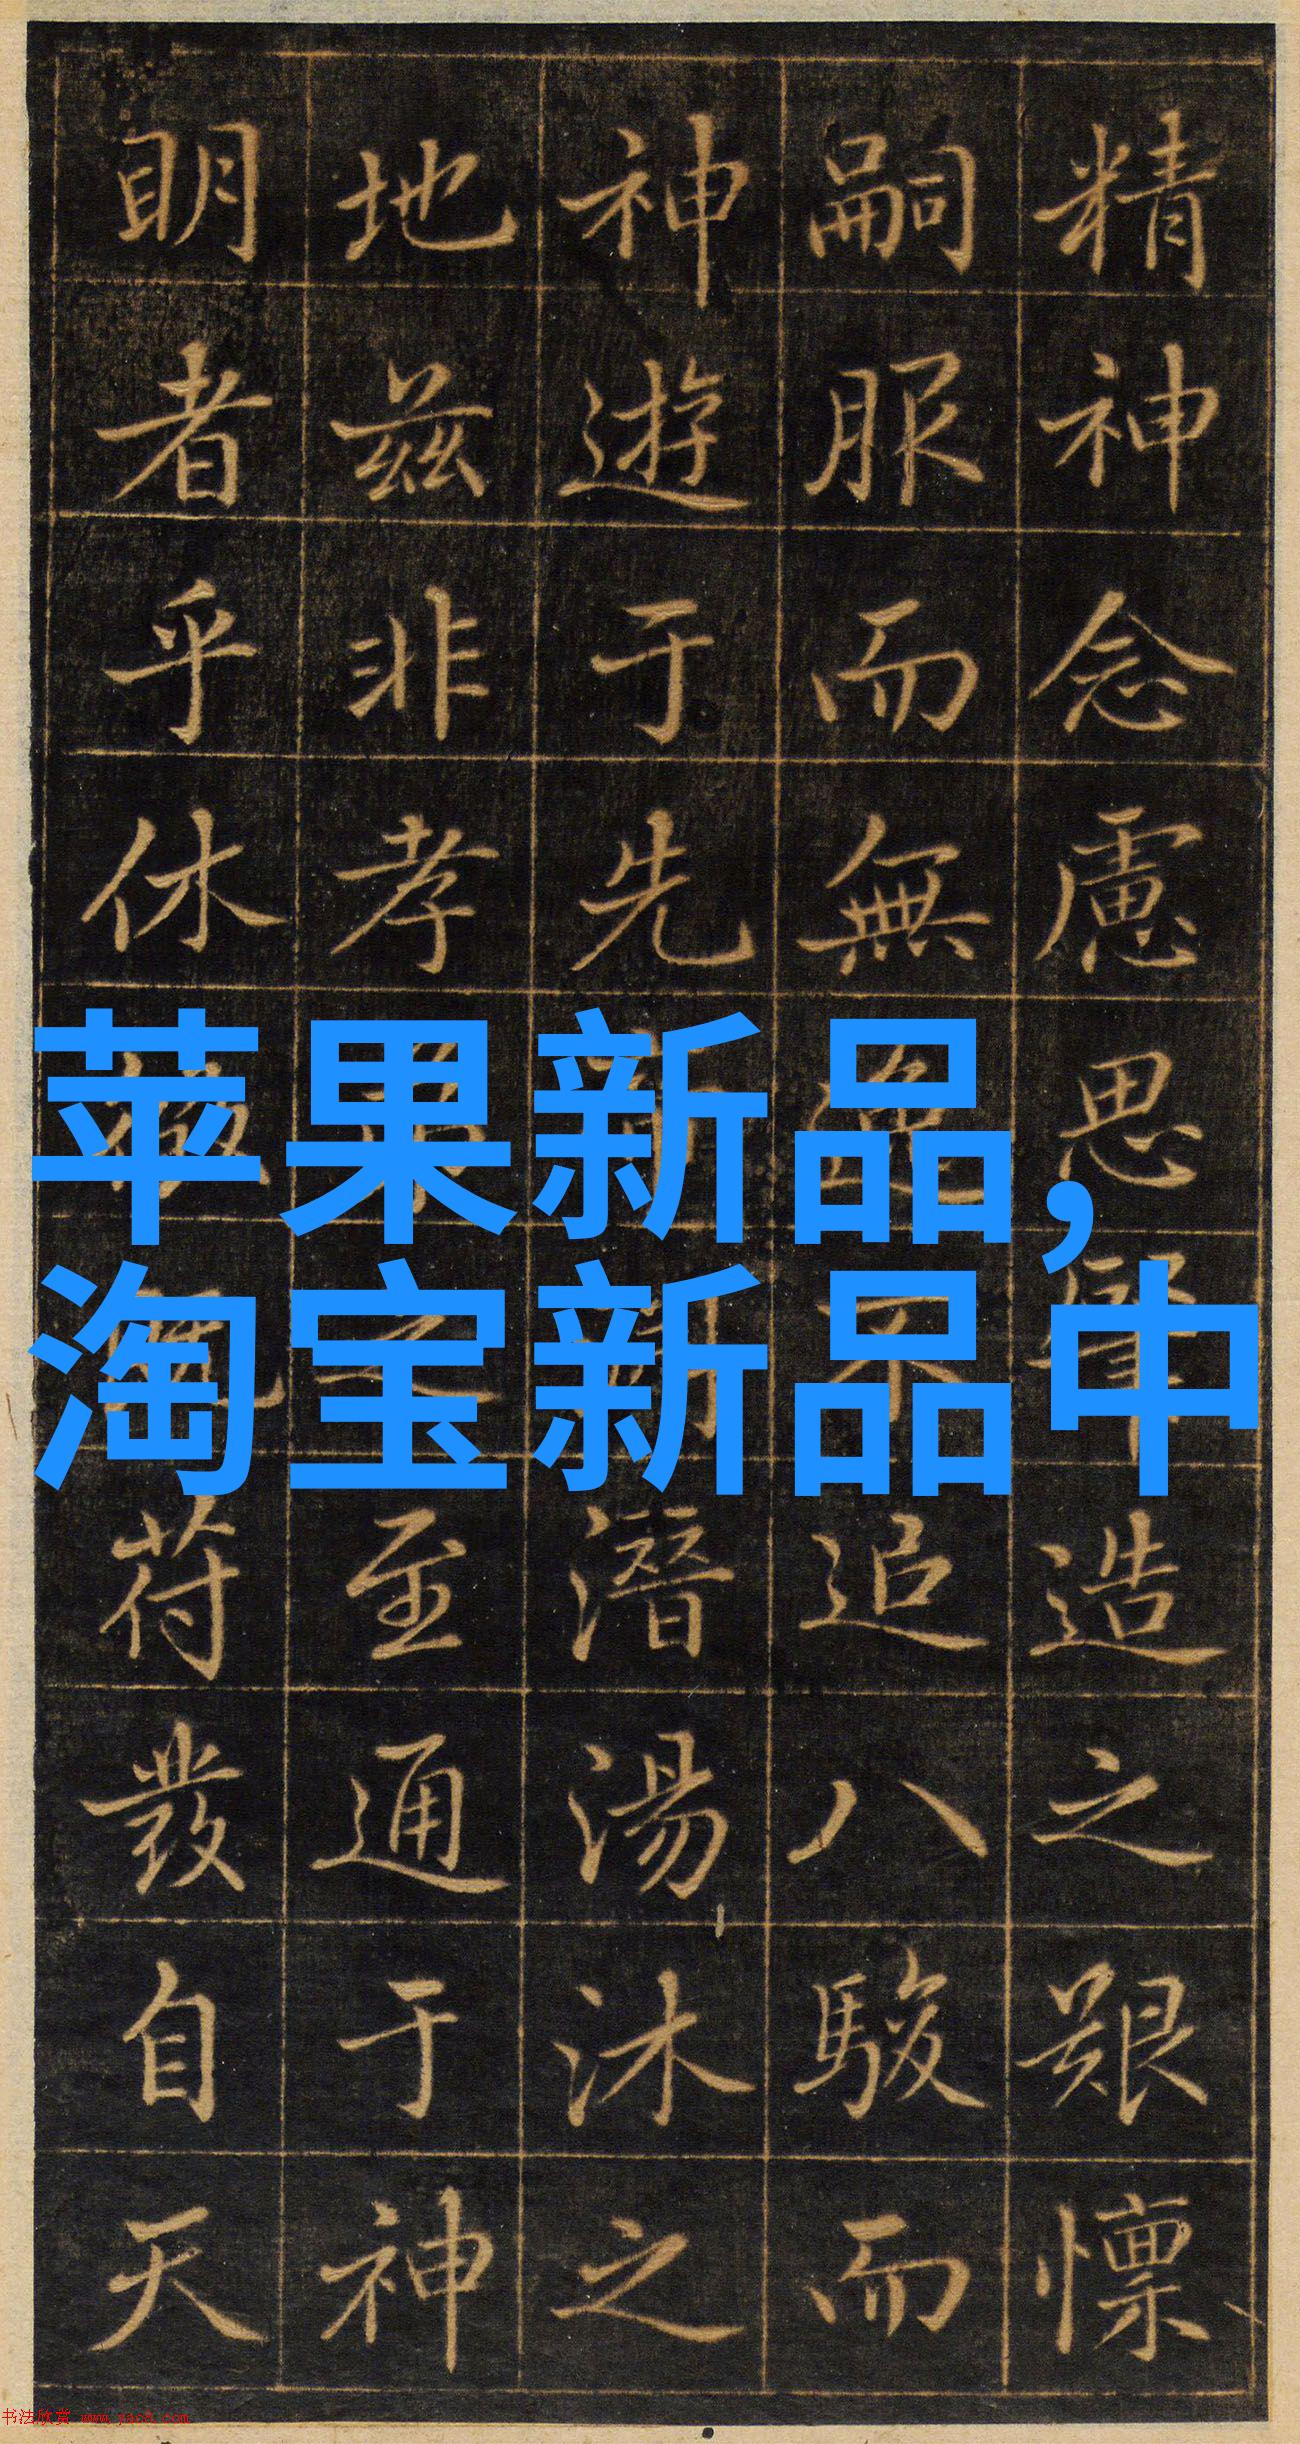 精神念慮思造之艱懍
嗣服而無逸不追八駿而
神遊于先潛湯沐之
地茲非孝弟之至通于神
明者乎休苻發自天
苹果新品,
淘宝新品中
书法欣赏 www.yac8.com